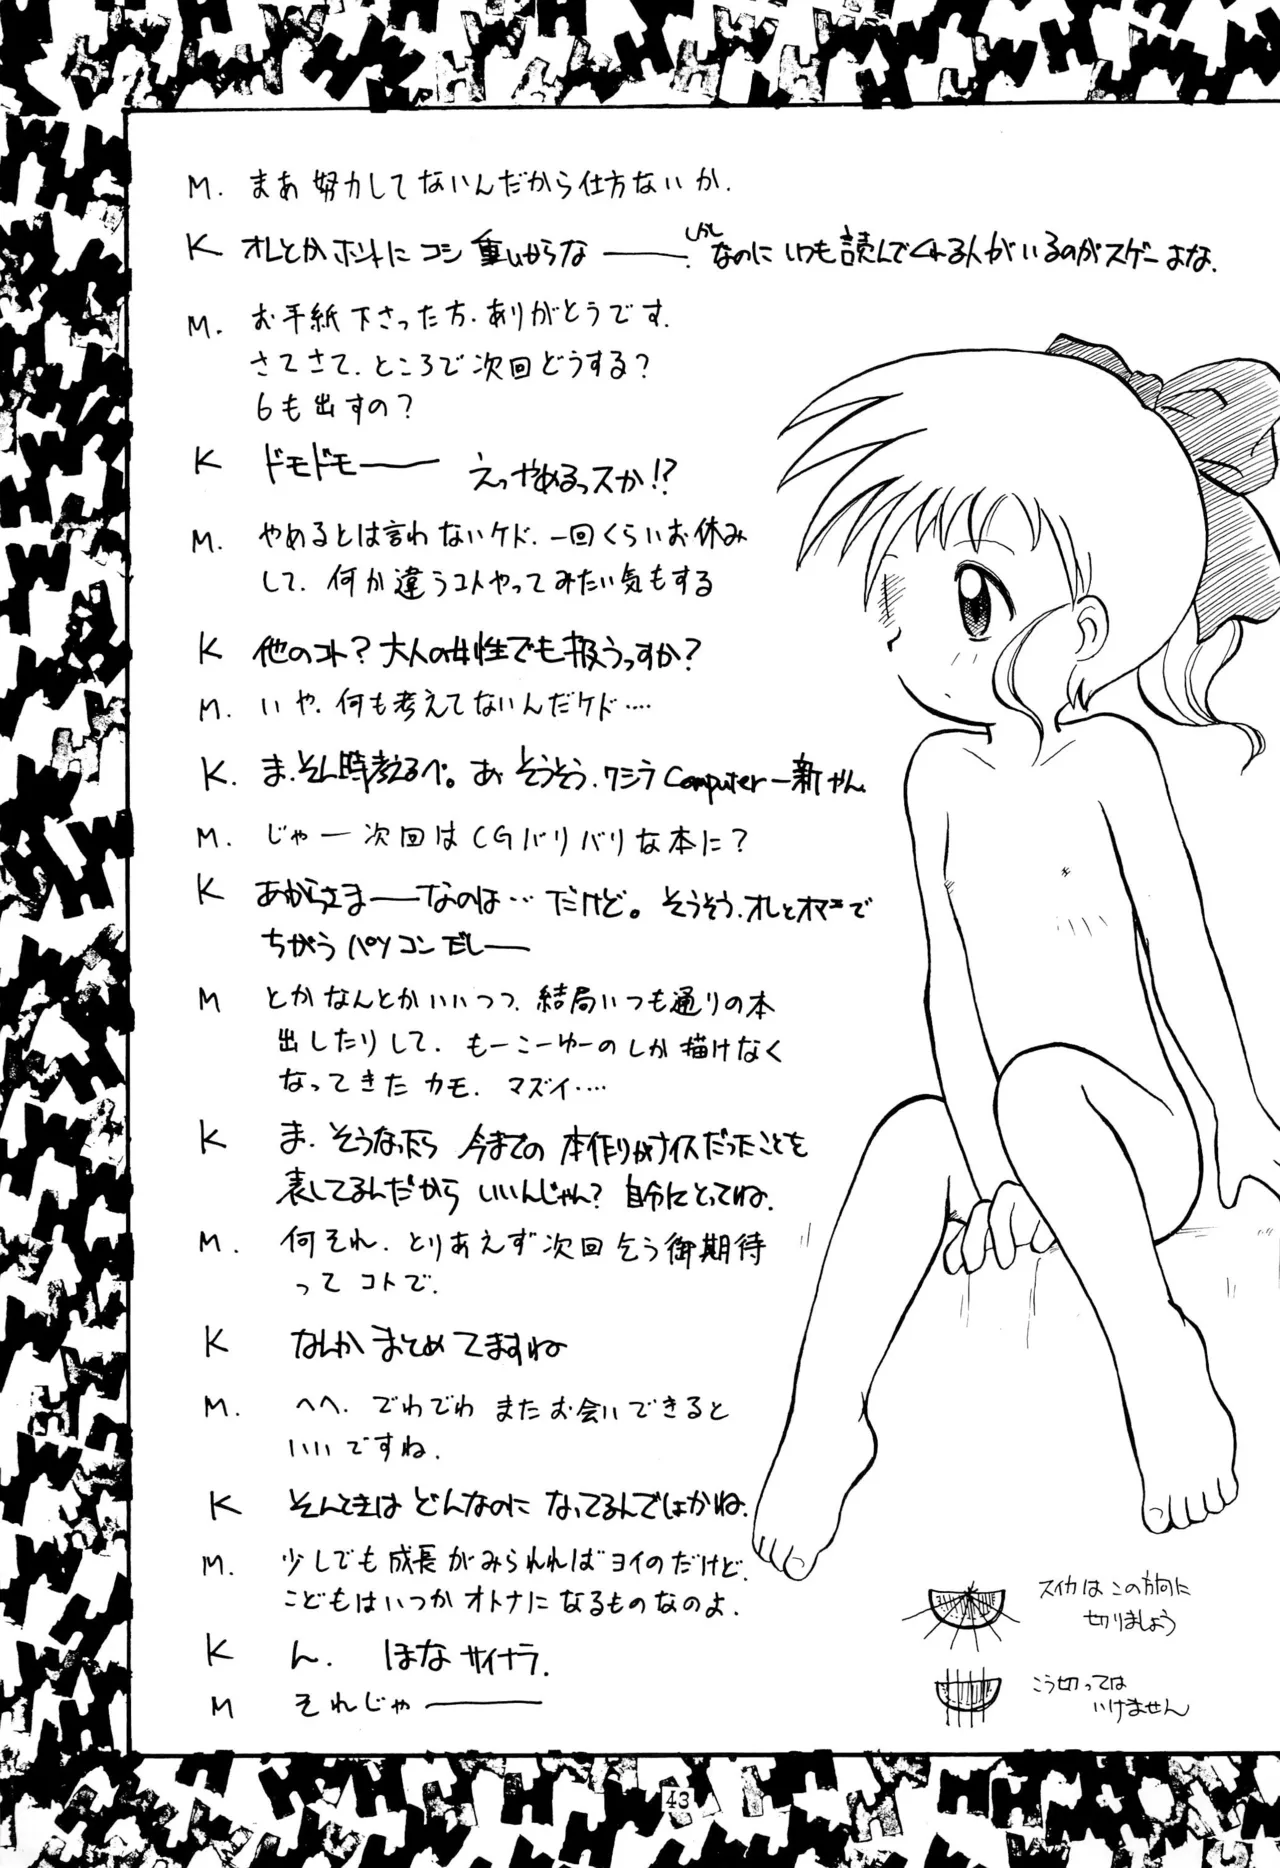 M. まあ努力してないんだから仕方ないか.
K オレとかホントにコシ重いからな——. しかし なのにいつも読んでくれる人がいるのがスゲーよな.
M. お手紙下さった方.ありがとうです.
さてさて.ところで次回どうする?
6も出すの?
K ドモドモ—— えっやめるっスか!?
M. やめるとは言わないケド.一回くらいお休み
して.何か違うコトやってみたい気もする
K 他のコト?大人の女性でも扱うっすか?
M. いや.何も考えてないんだケド....
K. ま.そん時考えるべ。あ そうそう.ワシラComputer一新やん.
M. じゃー次回はCGバリバリな本に?
K あからさま——なのは...だけど。そうそう.オレとオマエで
ちがうパソコンだし——
M とかなんとかいいつつ.結局いつも通りの本
出したりして.もーこーゆーのしか描けなく
なってきたカモ.マズイ....
K ま.そうなったら今までの本作りがナイスだったことを
表してるんだからいいんじゃん?自分にとってね.
M. 何それ.とりあえず次回乞う御期待
ってコトで.
K なんかまとめてますね
M. へへ.でわでわまたお会いできると
いいですね.
K そんときはどんなのになってるんでしょかね.
M. 少しでも成長がみられればヨイのだけど.
こどもはいつかオトナになるものなのよ.
K ん. ほなサイナラ.
M それじゃ——
スイカはこの方向に
切りましょう
こう切っては
いけません
43